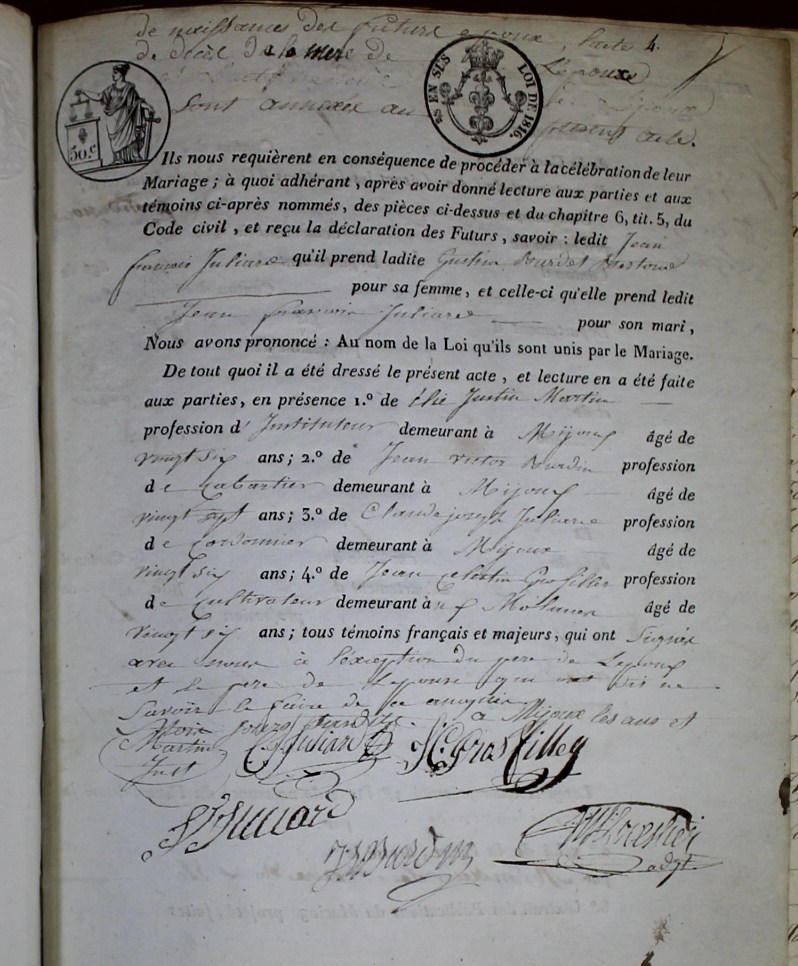 de naissance des futurs epoux, l'acte
de décès de la mere de Lepouse
sont annexés au present acte.
50 c.
EN SUS
LOI DE 1816.
Ils nous requièrent en conséquence de procéder à la célébration de leur
Mariage ; à quoi adhérant , après avoir donné lecture aux parties et aux
témoins ci-après nommés, des pièces ci-dessus et du chapitre 6, tit. 5, du
Code civil , et reçu la déclaration des Futurs , savoir : ledit Jean
françois Juliard qu'il prend ladite
pour sa femme, et celle-ci qu'elle prend ledit
Jean françois Juliard pour son mari ,
Nous avons prononcé : Au nom de la Loi qu'ils sont unis par le Mariage.
De tout quoi il a été dressé le présent acte , et lecture en a été faite
aux parties, en présence 1.º de élie Justin Martin
profession d' Instituteur demeurant à Mijoux âgé de
vingt six ans ; 2.º de Jean victor Bourdin profession
de Cabartier demeurant à Mijoux âgé de
vingt sept ans ; 3.º de Claude joseph Juliard profession
de Cordonnier demeurant à Mijoux âgé de
vingt six ans ; 4.º de Jean Celestin Grosfilley profession
de Cultivateur demeurant à âgé de
vingt six ans ; tous témoins français et majeurs, qui ont Signé
avec nous à l'exception du pere de Lepoux
et le pere de Lepouse qui ont dit ne
Savoir le faire de ce enquis
à Mijoux les ans et
Martin
Just
C. J. Juliard
J. C. Grosfilley
Juliard
J. V. Bourdin
adjt.